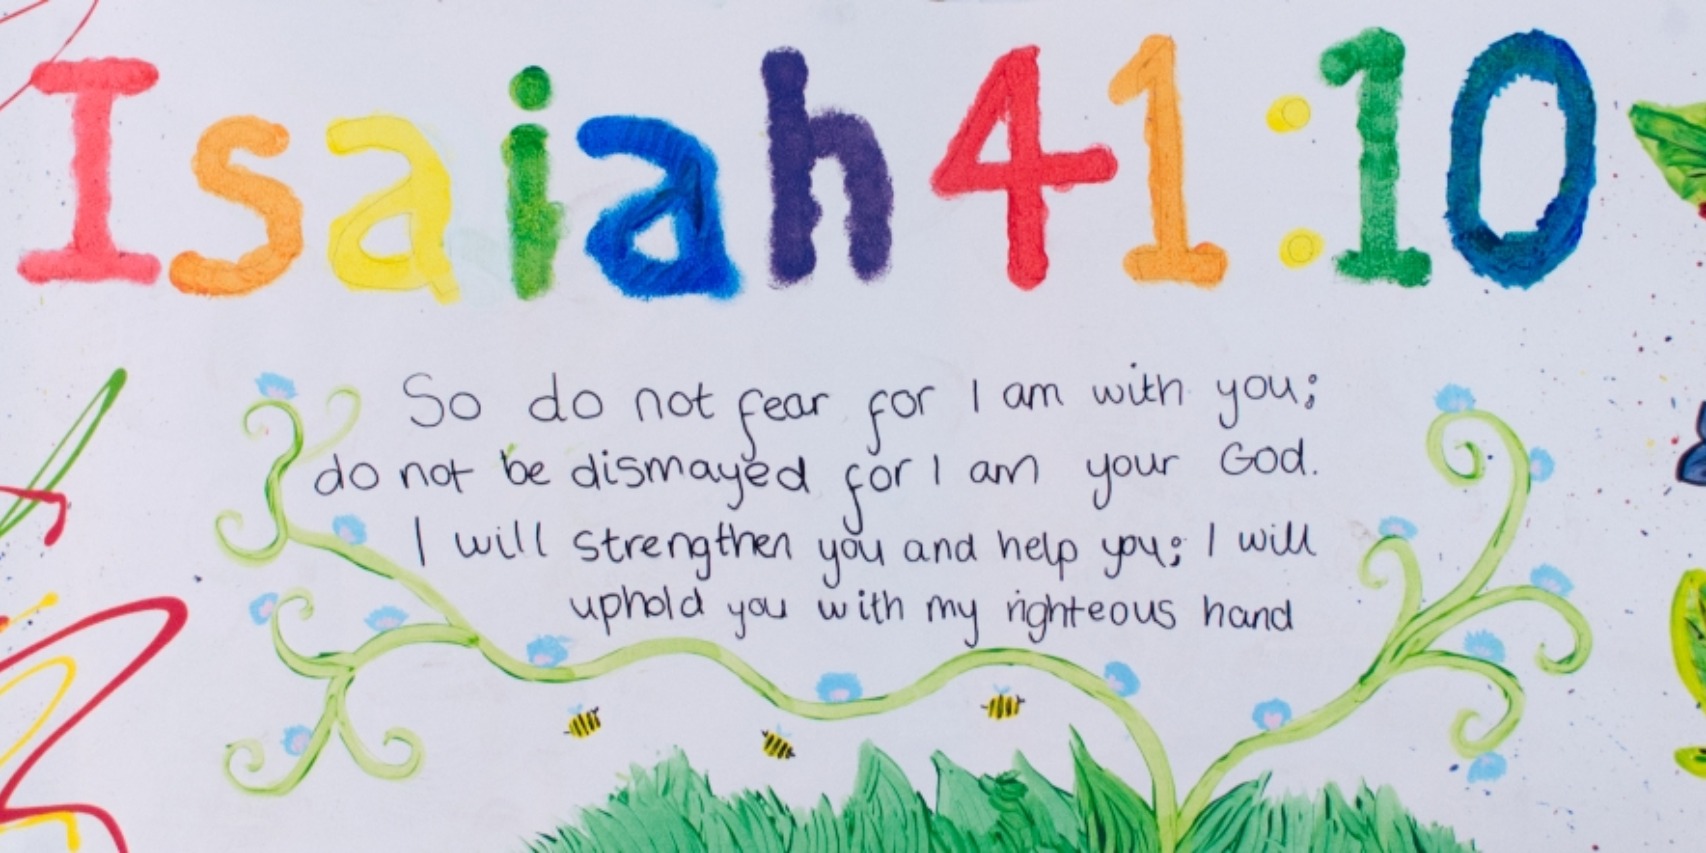 Isaiah 41:10
So do not fear for I am with you;
do not be dismayed for I am your God.
I will strengthen you and help you; I will
uphold you with my righteous hand